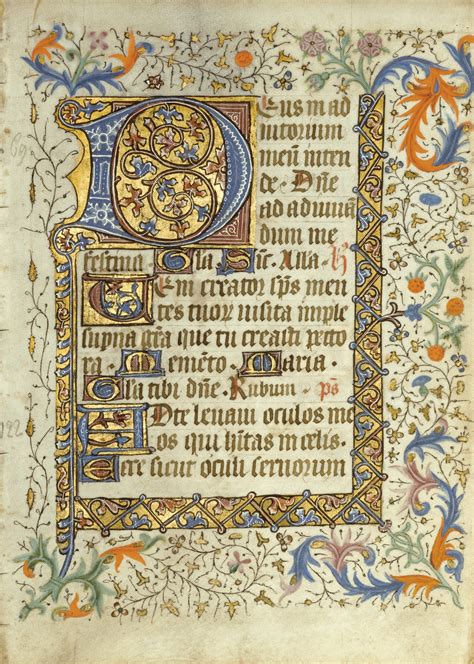 Deus in ad
iutorium
meū inten
de. Dn̄e
ad adiuuan
dum me
festina. Gl̄a. Sic̄. Alla. h
Veni creator sp̄s men
tes tuor̄ visita imple
sup̄na gr̄a que tu creasti pecto
ra. Memēto. Maria.
Gl̄a tibi dn̄e. Rubum. ps
Ad te leuaui oculos me
os qui hītas in celis.
Ecce sicut oculi seruorum